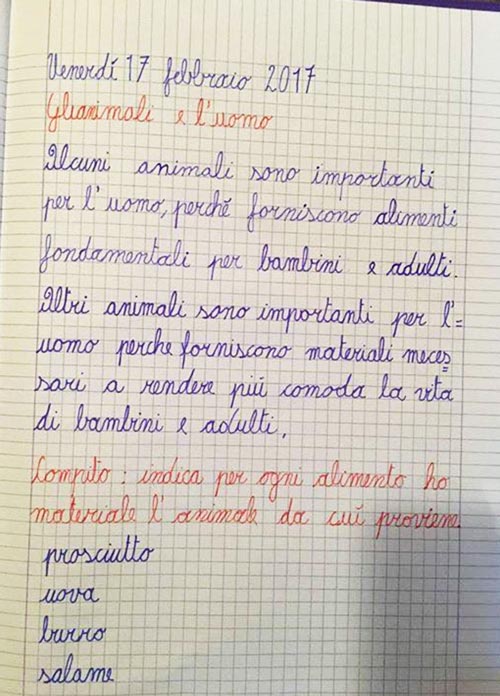 Venerdí 17 febbraio 2017
Glianimali e l'uomo
Alcuni animali sono importanti
per l'uomo, perché forniscono alimenti
fondamentali per bambini e adulti.
Altri animali sono importanti per l'=
uomo perche forniscono materiali neces=
sari a rendere piú comoda la vita
di bambini e adulti.
Compito: indica per ogni alimento ho
materiale l'animale da cui proviene.
prosciutto
uova
burro
salame